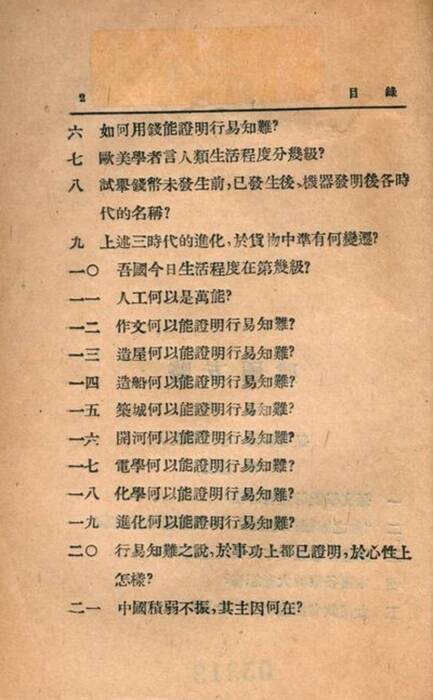 2 目錄
六 如何用錢能證明行易知難?
七 歐美學者言人類生活程度分幾級?
八 試舉錢幣未發生前,已發生後、機器發明後各時
代的名稱?
九 上述三時代的進化,於貨物中準有何變遷?
一〇 吾國今日生活程度在第幾級?
一一 人工何以是萬能?
一二 作文何以能證明行易知難?
一三 造屋何以能證明行易知難?
一四 造船何以能證明行易知難?
一五 築城何以能證明行易知難?
一六 開河何以能證明行易知難?
一七 電學何以能證明行易知難?
一八 化學何以能證明行易知難?
一九 進化何以能證明行易知難?
二〇 行易知難之說,於事功上都已證明,於心性上
怎樣?
二一 中國積弱不振,其主因何在?